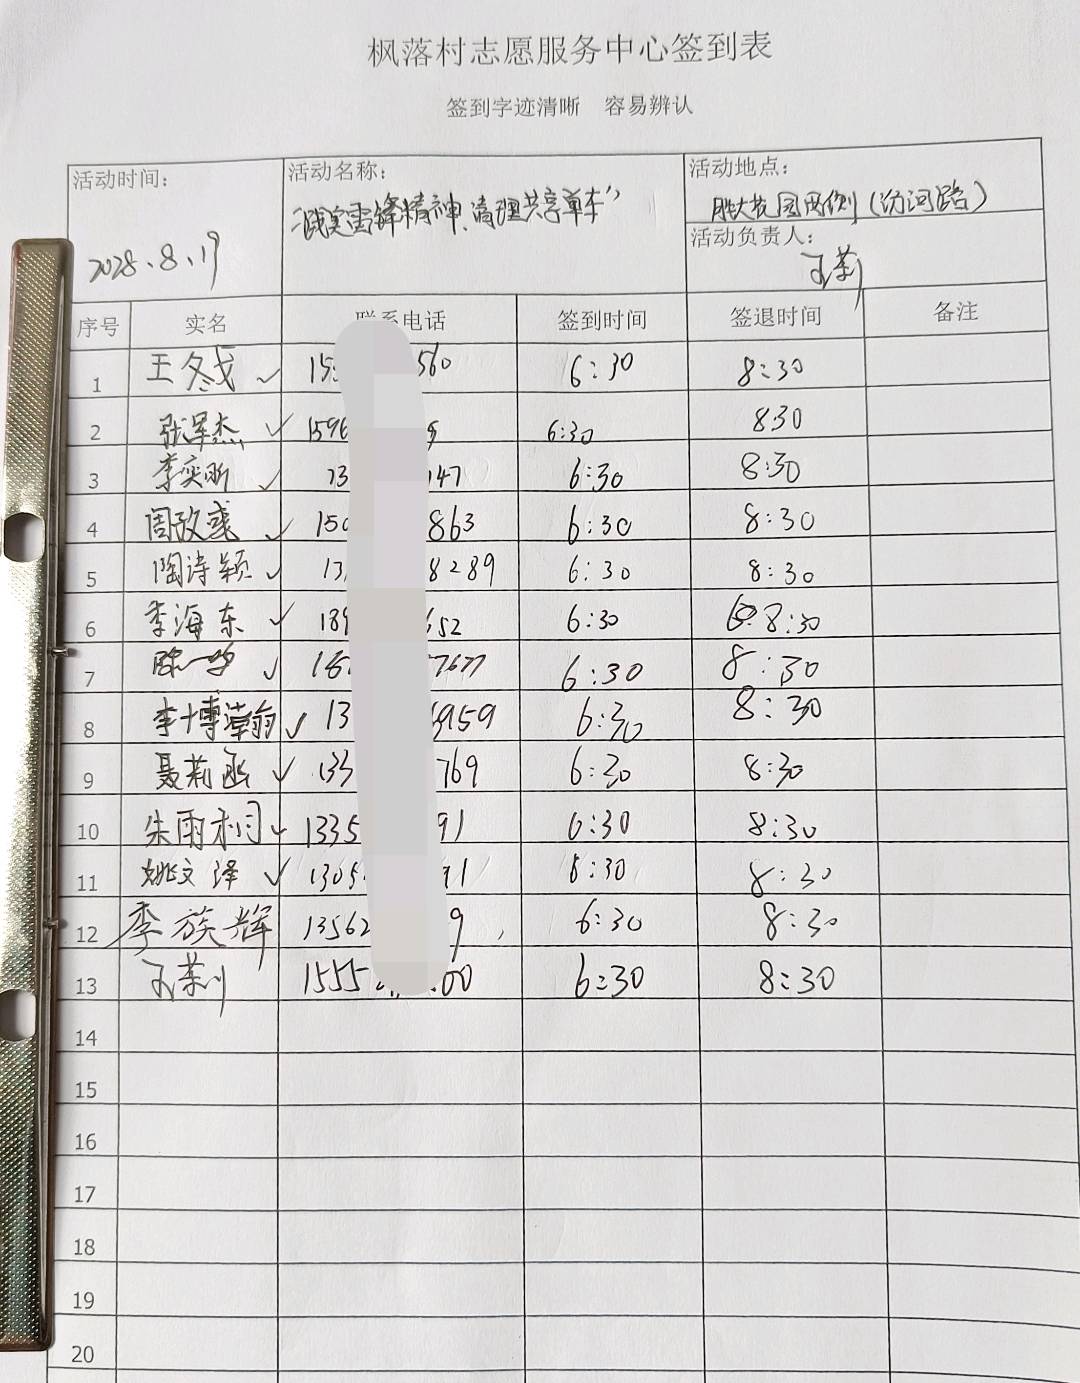 枫落村志愿服务中心签到表
签到字迹清晰 容易辨认
活动时间： 活动名称： 活动地点：
2028.8.19 “践实雷锋精神、清理共享单车” 两侧（汾河路）
活动负责人：
王莉
序号 实名 联系电话 签到时间 签退时间 备注
1 王冬戈 ✓ 15 560 6:30 8:30
2 张军杰 ✓ 1596 6:30 830
3 李奕昕 ✓ 13 147 6:30 8:30
4 周 ✓ 150 863 6:30 8:30
5 陶诗颖 ✓ 13 8289 6:30 8:30
6 李海东 ✓ 189 652 6:30 8:30
7 陈一 ✓ 7677 6:30 8:30
8 李博瀚 ✓ 13 6959 6:30 8:30
9 聂莉函 ✓ 133 769 6:30 8:30
10 朱雨桐 ✓ 1335 91 6:30 8:30
11 姚文泽 ✓ 1305 91 6:30 8:30
12 李族辉 13562 9 6:30 8:30
13 王莉 1555 00 6:30 8:30
14
15
16
17
18
19
20